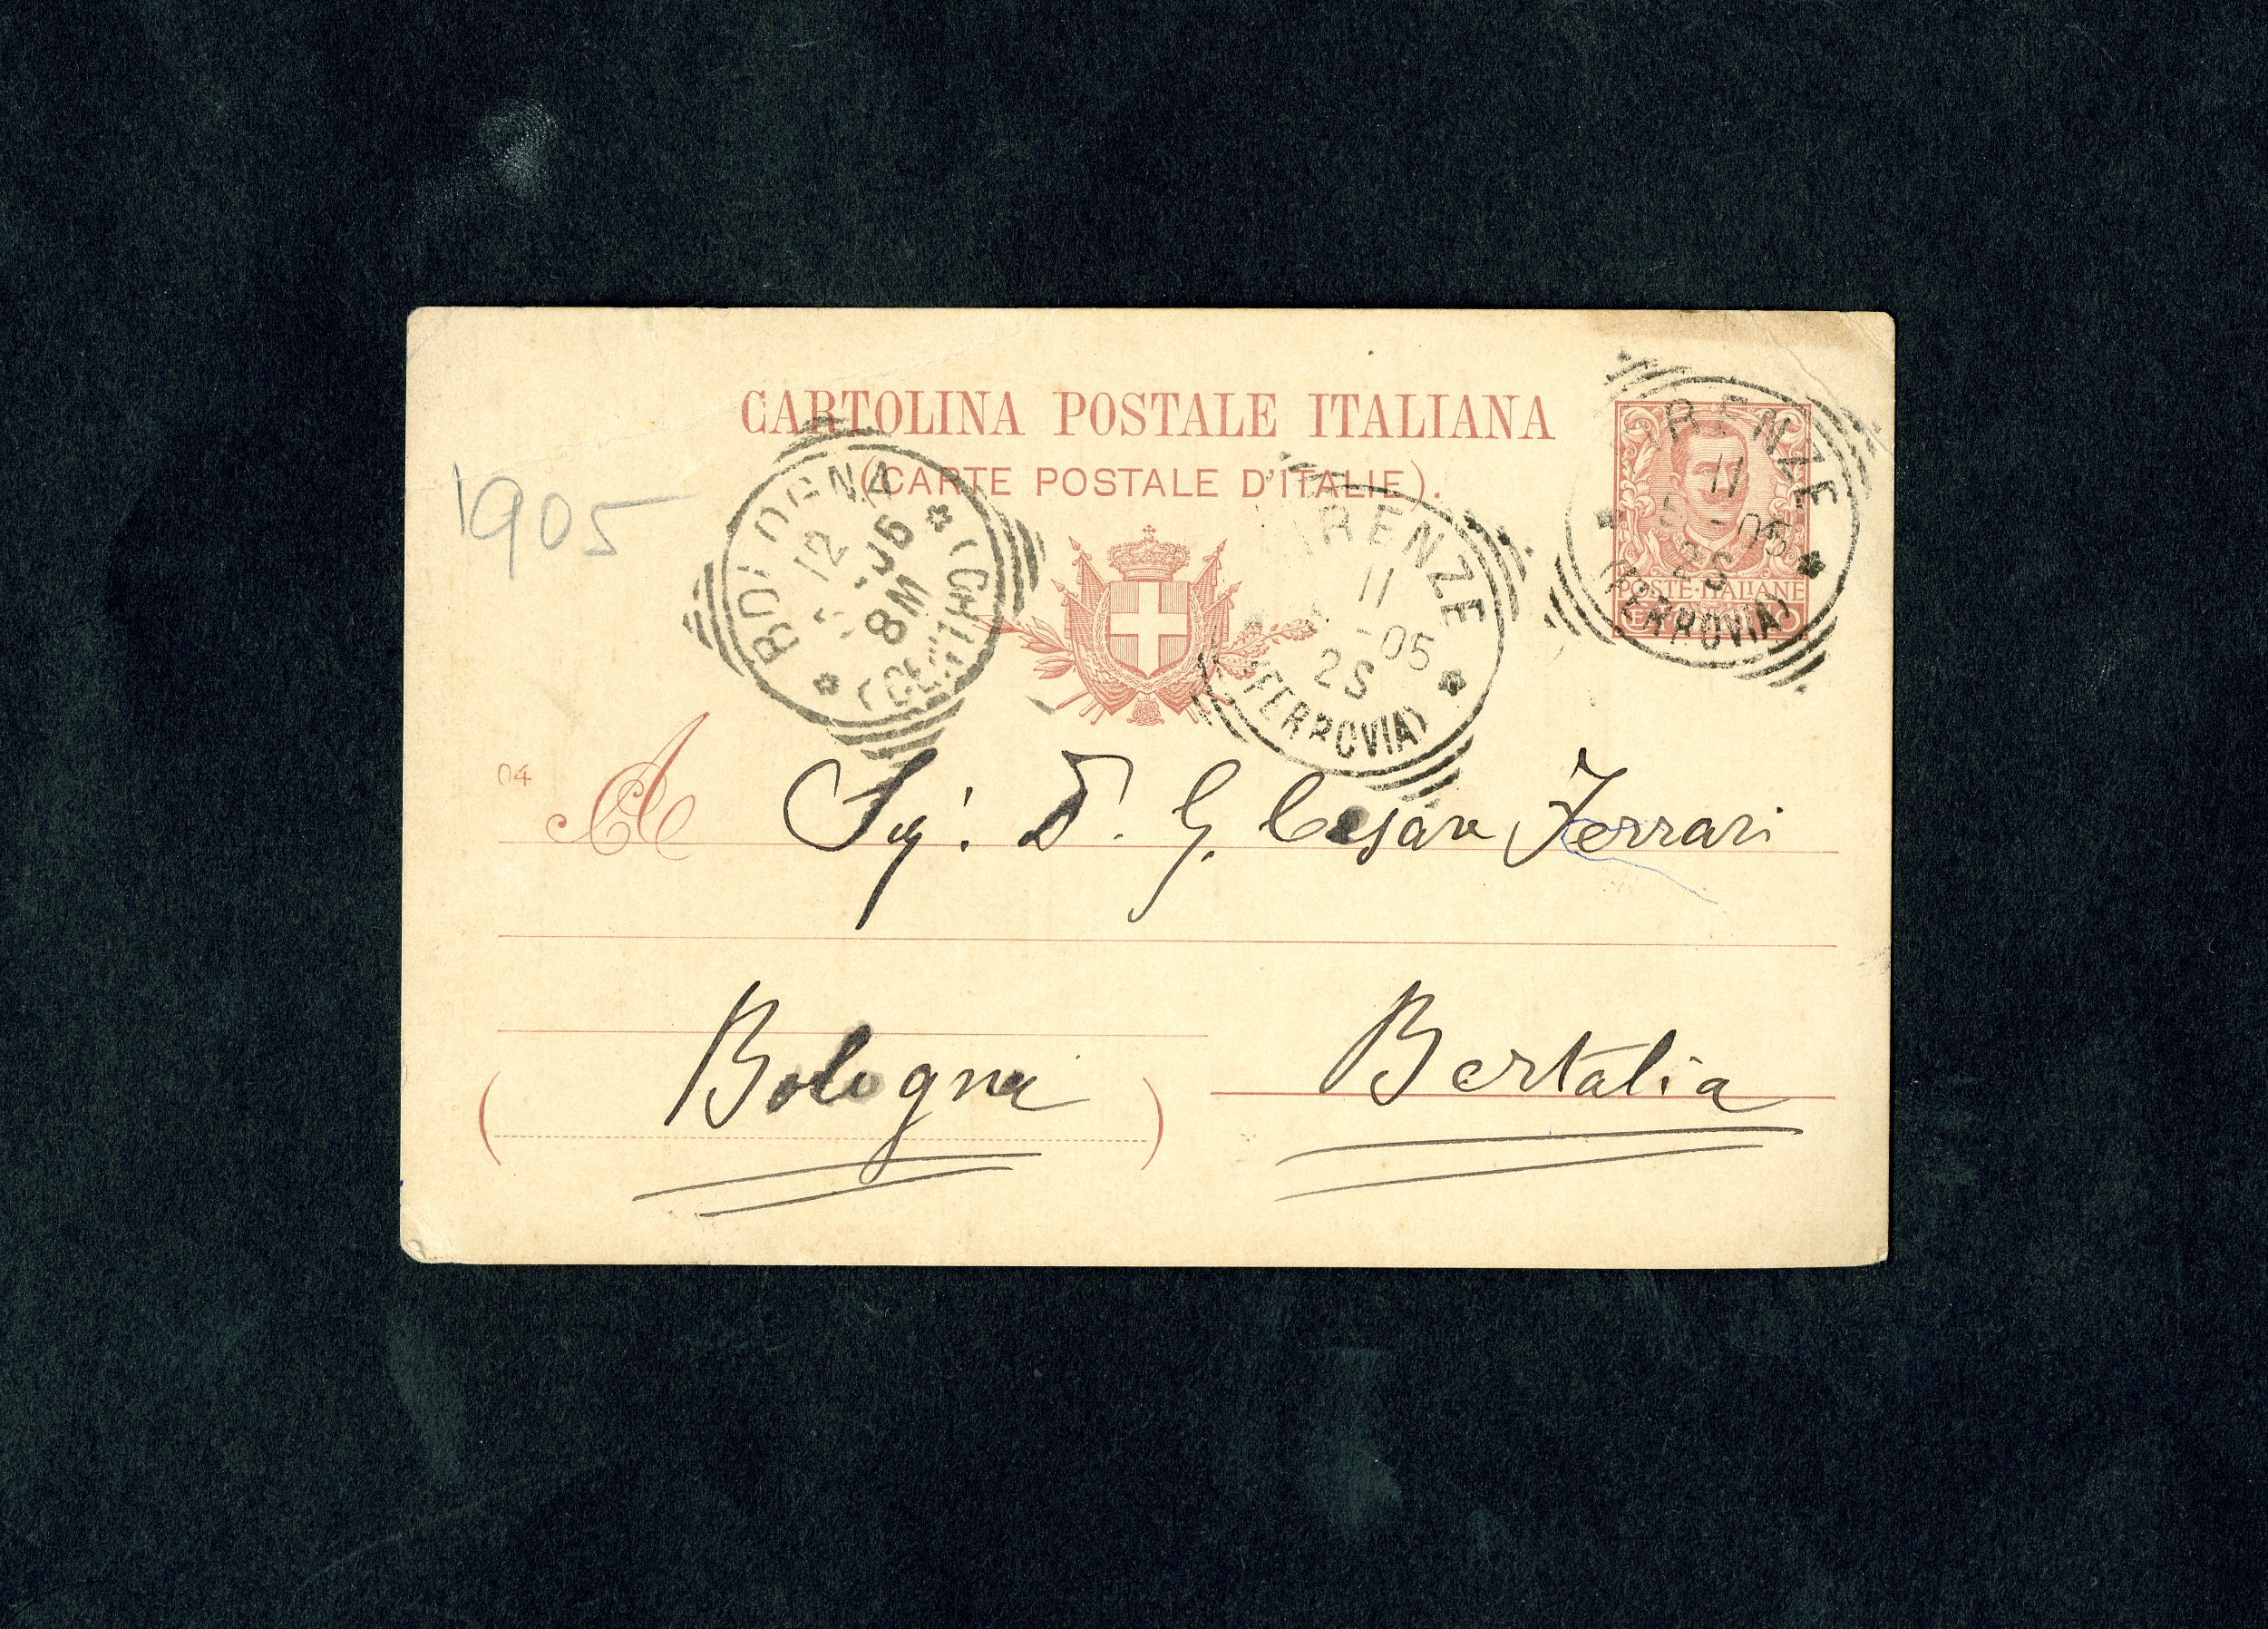 CARTOLINA POSTALE ITALIANA
(CARTE POSTALE D'ITALIE).
1905
BOLOGNA
12
05
8M
FIRENZE
11
-05
2S
(FERROVIA)
FIRENZE
11
-05
2S
(FERROVIA)
POSTE·ITALIANE
04
A Sig: D. G. Cesare Ferrari
Bologna
Bertalia